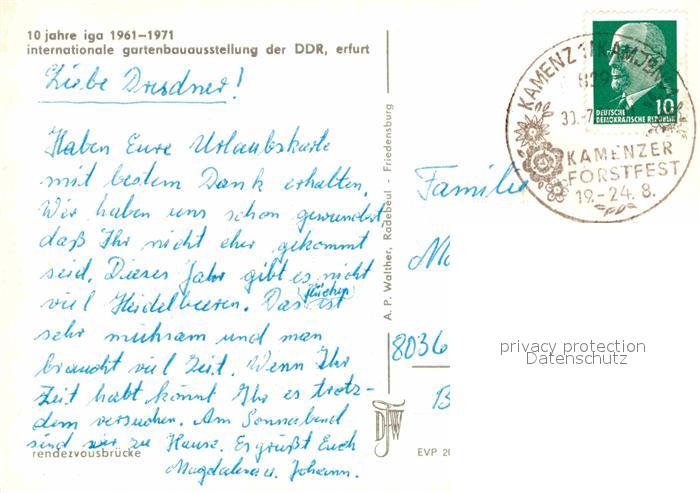 10 jahre iga 1961–1971
internationale gartenbauausstellung der DDR, erfurt
Liebe Dresdner!
Haben Eure Urlaubskarte
mit bestem Dank erhalten.
Wir haben uns schon gewundert
daß Ihr nicht eher gekommt
seid. Dieses Jahr gibt es nicht
viel Heidelbeeren. Das Suchen ist
sehr mühsam und man
braucht viel Zeit. Wenn Ihr
Zeit habt könnt Ihr es trotz-
dem versuchen. Am Sonnabend
sind wir zu Hause. Es grüßt Euch
Magdalena u. Johann.
rendezvousbrücke
A. P. Walther, Radebeul - Friedensburg
DFW
EVP 20
Familie
8036
KAMENZ 1 / KAMJENC
30.-7
KAMENZER
FORSTFEST
19.-24. 8.
DEUTSCHE
DEMOKRATISCHE REPUBLIK
10
privacy protection
Datenschutz